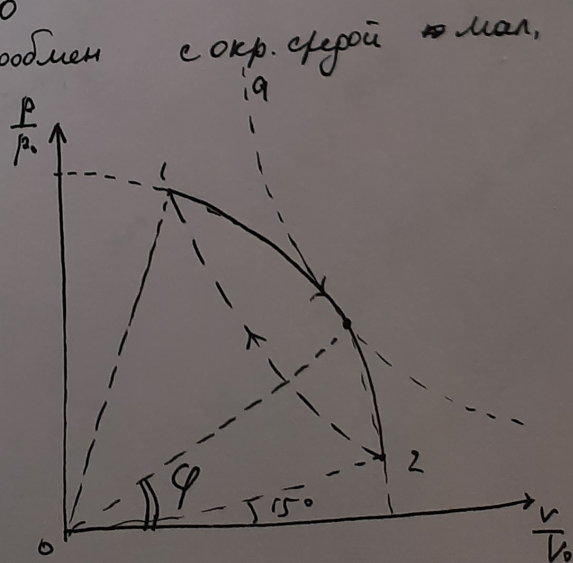 0
ообмен с окр. средой мал,
a
p
p₀
1
2
φ
15°
0
V
V₀